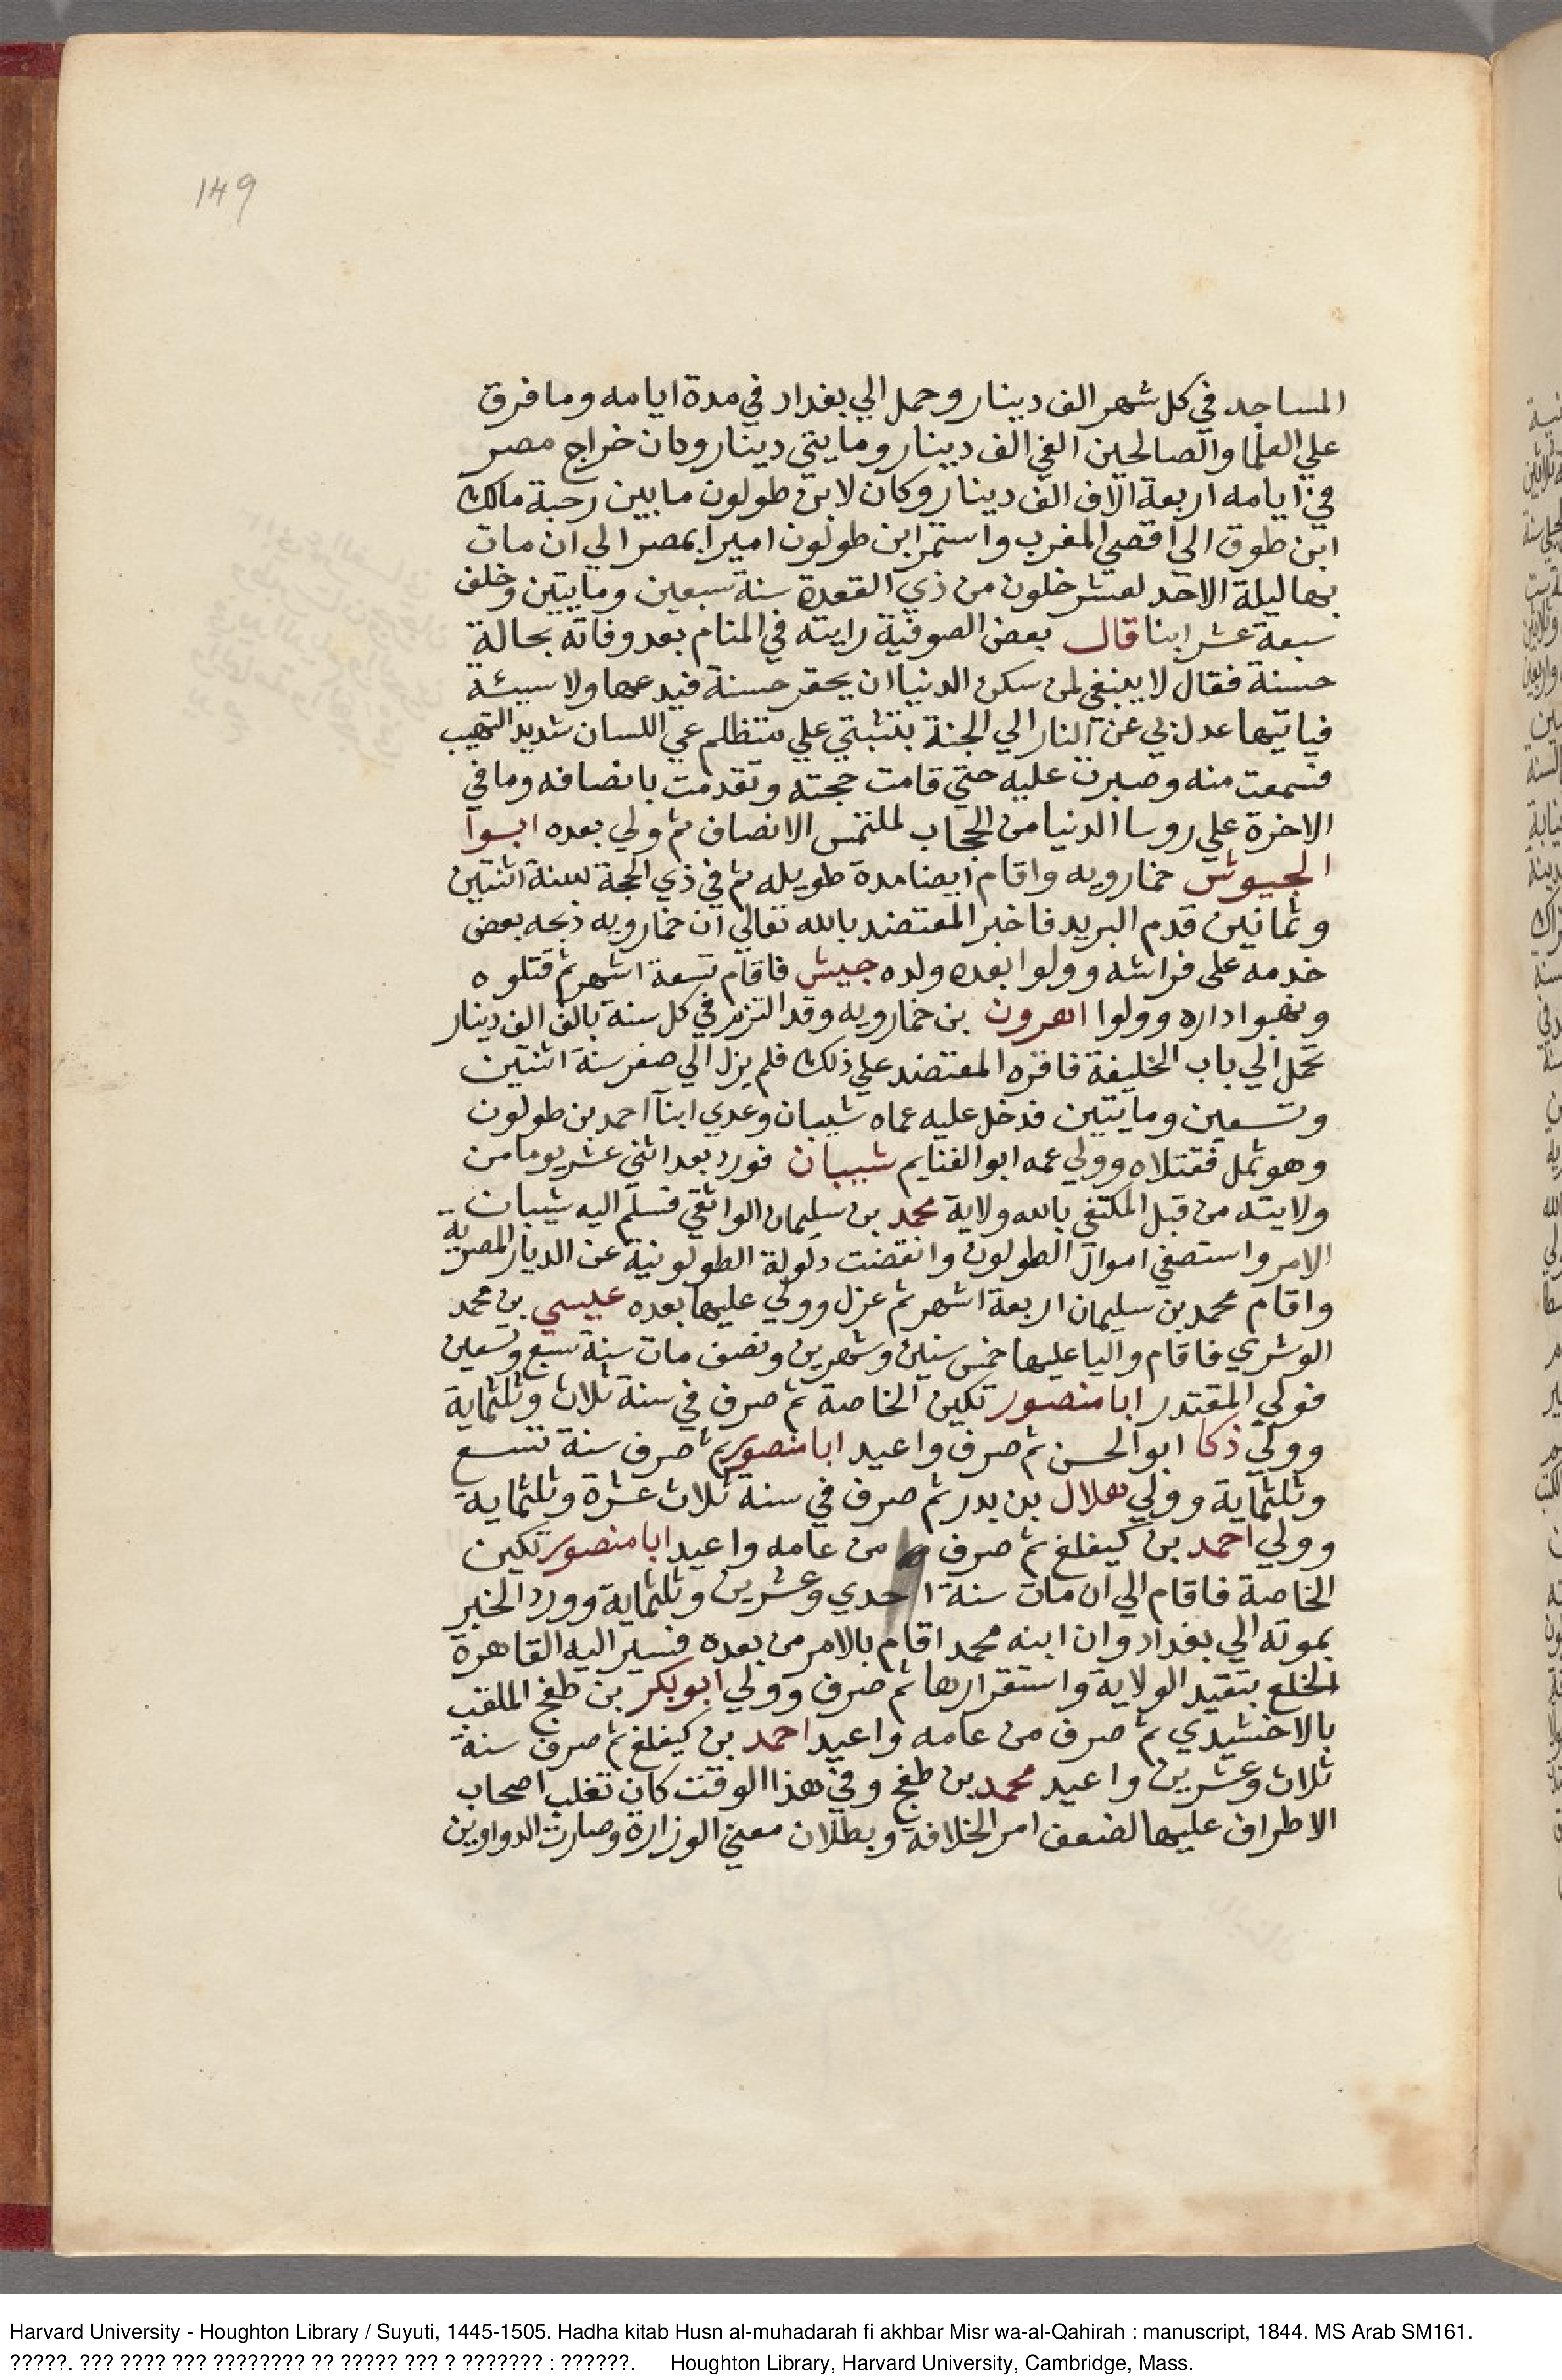 149
المساجد في كل شهر الف دينار وحمل الي بغداد في مدة ايامه وما فرق
علي العلما والصالحين الفي الف دينار ومايتي دينار وكان خراج مصر
في ايامه اربعة الاف الف دينار وكان لابن طولون ما بين رحبة مالك
ابن طوق الي اقصي المغرب واستمر ابن طولون اميرا بمصر الي ان مات
بها ليلة الاحد لعشر خلون من ذي القعدة سنة سبعين ومايتين وخلف
سبعة عشر ابنا قال بعض الصوفية رايته في المنام بعد وفاته بحالة
حسنة فقال لا ينبغي لمن سكن الدنيا ان يحقر حسنة فيدعها ولا سيئة
فياتيها عدل بي عن النار الي الجنة بتثبتي علي متظلم عي اللسان شديد التهيب
فسمعت منه وصبرت عليه حتي قامت حجته وتقدمت بانصافه وما في
الاخرة علي روسا الدنيا من الحجاب لملتمس الانصاف ثم ولي بعده ابوا
الجيوش خمارويه واقام ايضا مدة طويله ثم في ذي الحجة لسنة اثنتين
وثمانين قدم البريد فاخبر المعتضد بالله تعالي ان خمارويه ذبحه بعض
خدمه على فراشه وولوا بعده ولده جيش فاقام تسعة اشهر ثم قتلوه
ونهبوا داره وولوا اهرون بن خمارويه وقد التزم في كل سنة بالف الف دينار
تحمل الي باب الخليفة فاقره المعتضد علي ذلك فلم يزل الي صفر سنة اثنتين
وتسعين ومايتين فدخل عليه عماه شيبان وعدي ابنا احمد بن طولون
وهو ثمل فقتلاه وولي عمه ابو الغنايم شيبان فورد بعد اثني عشر يوما من
ولايته من قبل المكتفي بالله ولاية محمد بن سليمان الواثقي فسلم اليه شيبان
الامر واستصفي اموال الطولون وانقضت دولة الطولونية عن الديار المصرية
واقام محمد بن سليمان اربعة اشهر ثم عزل وولي عليها بعده عيسي بن محمد
الوشري فاقام واليا عليها خمس سنين وشهرين ونصف مات سنة سبع وتسعين
فولي المقتدر ابا منصور تكين الخاصة ثم صرف في سنة ثلاث وثلثماية
وولي ذكا ابو الحسن ثم صرف واعيد ابا منصور ثم صرف سنة تسع
وثلثماية وولي هلال بن بدر ثم صرف في سنة ثلاث عشرة وثلثماية
وولي احمد بن كيغلغ ثم صرف من عامه واعيد ابا منصور تكين
الخاصة فاقام الي ان مات سنة احدي وعشرين وثلثماية وورد الخبر
بموته الي بغداد وان ابنه محمد اقام بالامر من بعده فسير اليه القاهرة
الخلع بتقيد الولاية واستقرارها ثم صرف وولي ابو بكر بن طغج الملقب
بالاخشيدي ثم صرف من عامه واعيد احمد بن كيغلغ ثم صرف سنة
ثلاث وعشرين واعيد محمد بن طغج وفي هذا الوقت كان تغلب اصحاب
الاطراف عليها لضعف امر الخلافة وبطلان معني الوزارة وصارت الدواوين
Harvard University - Houghton Library / Suyuti, 1445-1505. Hadha kitab Husn al-muhadarah fi akhbar Misr wa-al-Qahirah : manuscript, 1844. MS Arab SM161.
?????. ??? ???? ??? ???????? ?? ????? ??? ? ??????? : ??????. Houghton Library, Harvard University, Cambridge, Mass.